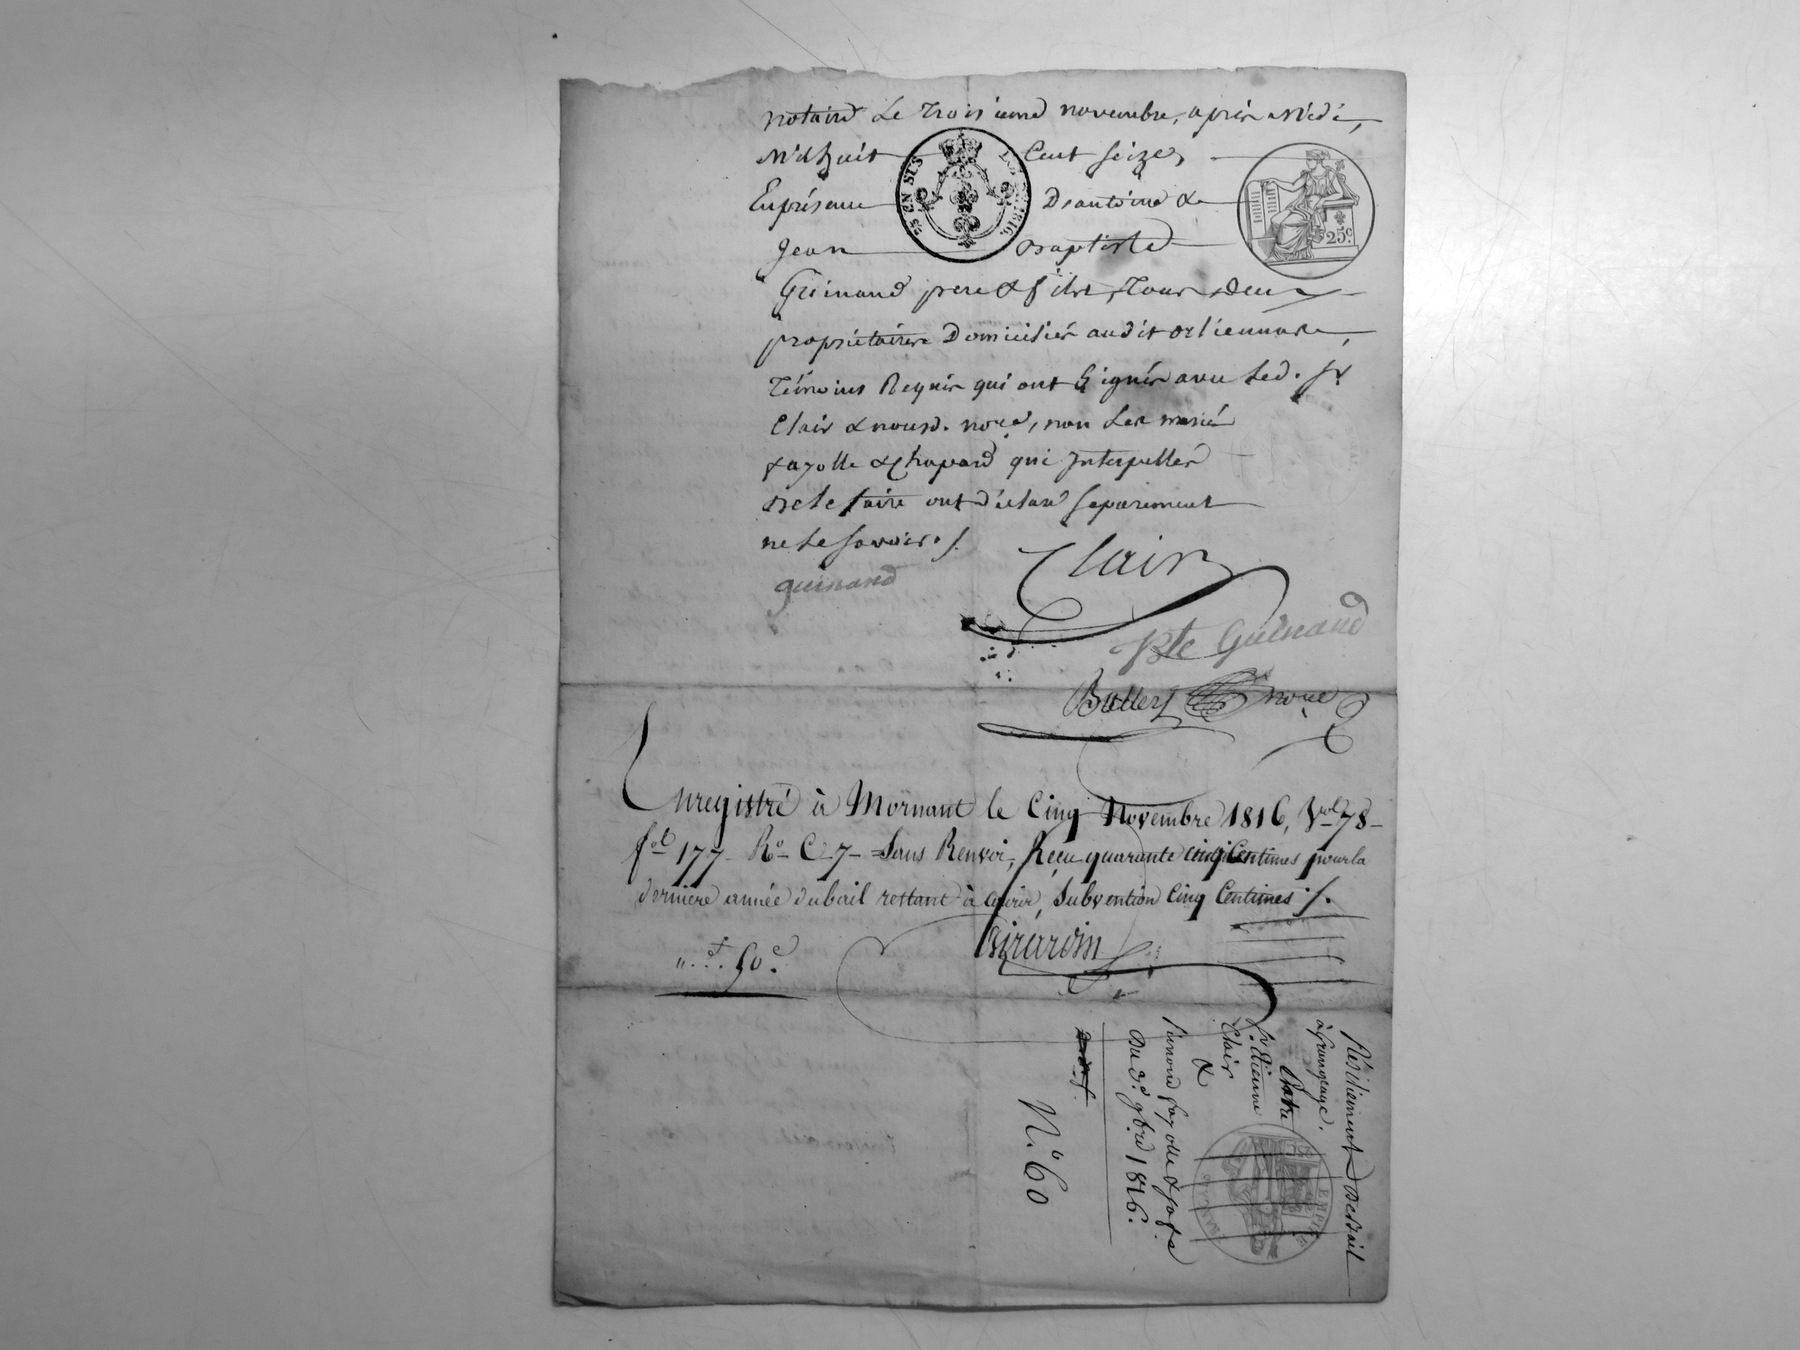 notaire Le Troisieme novembre, après Midi,
Mil huit Cent seize,
En présence D'antoine &
Jean Baptiste
Guinand pere & fils, Tous deux
propriétaires Domiciliés audit orliennas,
Témoins Requis qui ont Signés avec led. Sr.
Clair & nousd. nore, non Les mariés
fayolle & Chapard qui Interpellés
de le faire ont déclaré separement
ne le savoir ./.
guinand
Clair
Bte Guinand
nore
Enregistré à Mornant le Cinq Novembre 1816, Vol. 78
fol. 177 Ro. C. 7 Sans Renvoi, Recu quarante cinq Centimes pour la
derniere année du bail restant à courir, Subvention Cinq Centimes ./.
Girardin
50 c.
Résiliement De Bail
à Grangeage.
Entre
Sr. Etienne
Clair
&
Simond fayolle & sa fe
Du 3e. 9bre 1816.
N.o 60
25 EN SUS
25c.
EMPIRE
FRANÇAIS